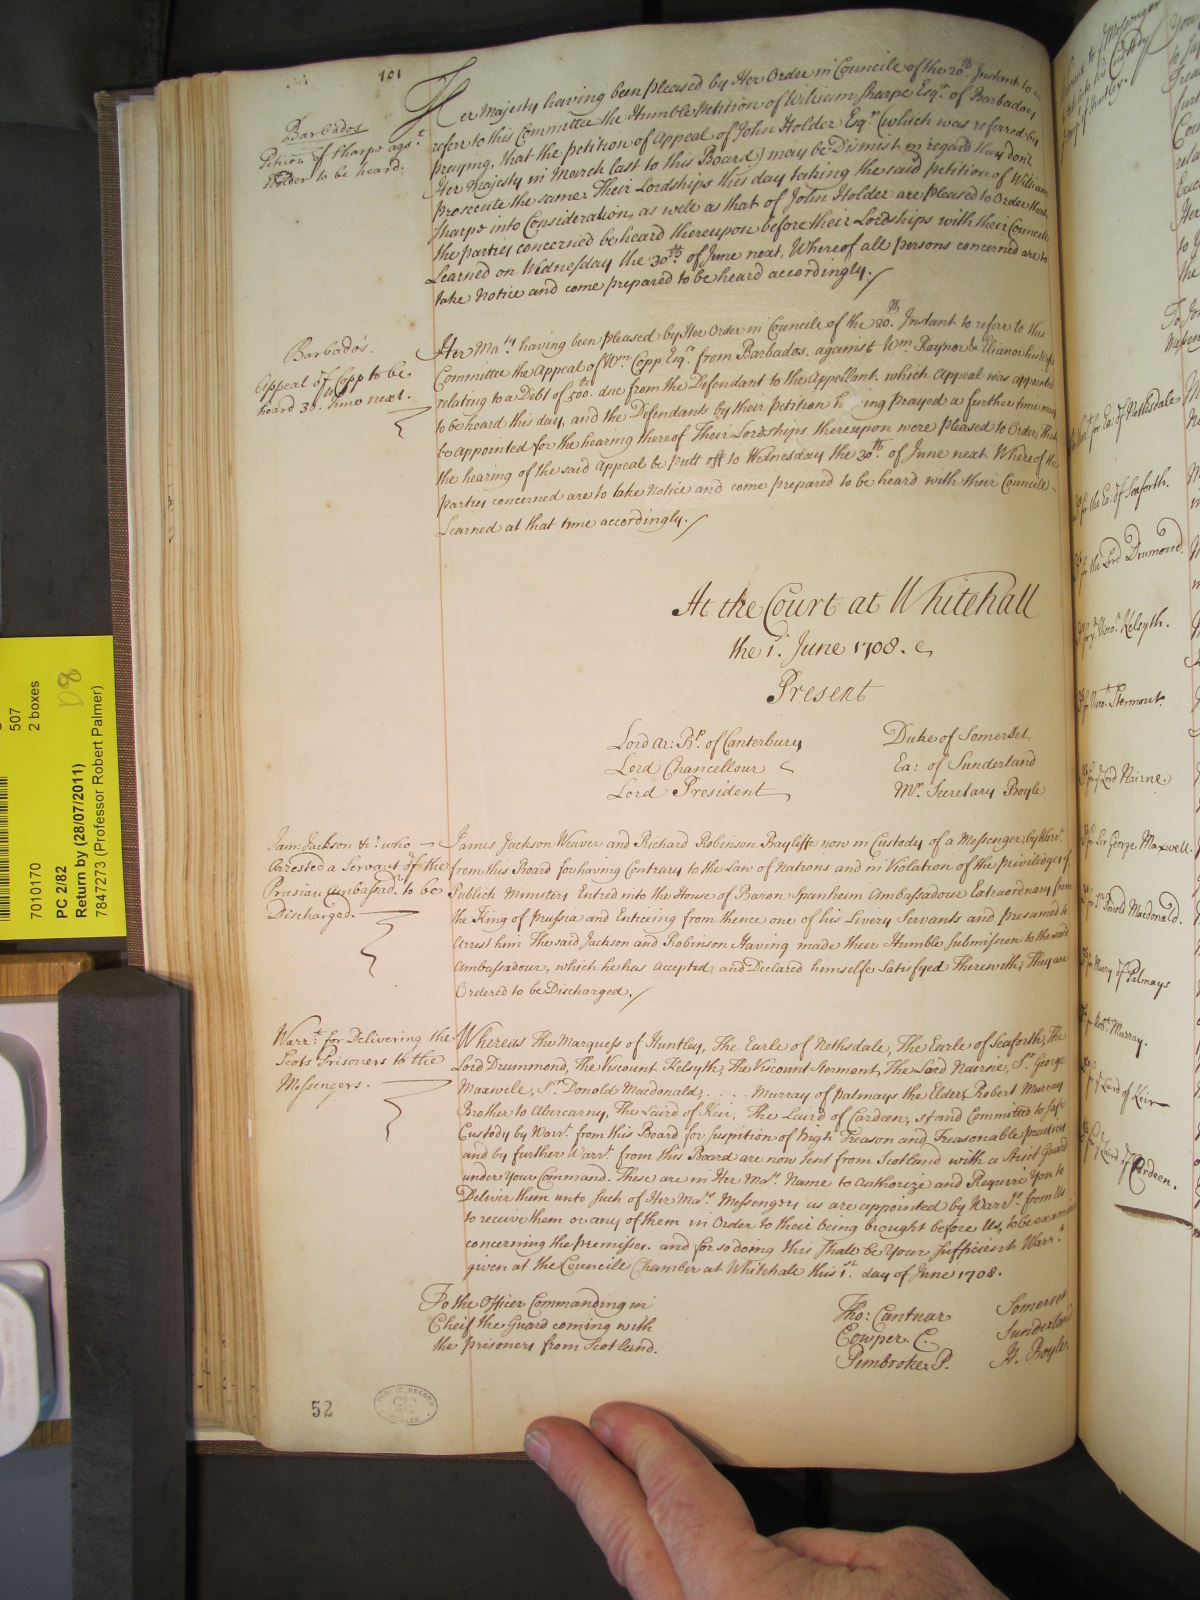 101
Barbados
Petition of Sharpe agst.
Holder to be heard.
Her Majesty having been pleased by Her Order in Councile of the 20th. Instant to
referr to this Committee the Humble Petition of William Sharpe Esqr. of Barbadoes
praying, that the petition of Appeal of John Holder Esqr. (which was referred by
Her Majesty in March last to this Board) may be Dismist in regard they dont
prosecute the same. Their Lordships this day taking the said petition of William
Sharpe into Consideration, as well as that of John Holder are pleased to Order that
the parties concerned be heard thereupon before their Lordships with their Councile
Learned on Wednesday the 30th. of June next, Whereof all persons concerned are to
take Notice and come prepared to be heard accordingly.
Barbados.
Appeal of Copp to be
heard 30. June next.
Her Maty. having been pleased by Her Order in Councile of the 20th. Instant to referr to this
Committee the Appeal of Wm. Copp Esqr. from Barbados. against Wm. Raynor & Elianor his Wife
relating to a Debt of 500. due from the Defendant to the Appellant. which Appeal was appointed
to be heard this day, and the Defendants by their petition h ing prayed a further time may
be appointed for the hearing thereof Their Lordships thereupon were pleased to Order, That
the hearing of the said Appeal be putt off to Wednesday the 30th. of June next Whereof the
Parties concerned are to take Notice and come prepared to be heard with their Councile
Learned at that time accordingly.
At the Court at Whitehall
the 1st. June 1708.
Present
Lord Ar: Bp. of Canterbury
Lord Chancellour
Lord President
Duke of Somerset
Ea: of Sunderland
Mr. Secretary Boyle
Jam: Jackson &c. who
Arrested a Servant of the
Prusian Ambassdr. to be
Discharged.
James Jackson Weaver and Richard Robinson Bayliffe now in Custody of a Messenger by Warrt.
from this Board for having Contrary to the Law of Nations and in Violation of the priviledge of
Publick Ministers Entred into the House of Baron Spanheim Ambassadour Extraordnary from
the King of prussia and Enticeing from thence one of his Livery Servants and presumed to
Arrest him The said Jackson and Robinson Having made their Humble Submission to the said
Ambassadour, which he has Accepted, and Declared himselfe Satisfyed Therewith, They are
Ordered to be Discharged.
Warrt. for Delivering the
Scots Prisoners to the
Messengers.
Whereas The Marquess of Huntley, The Earle of Nethsdale, The Earle of Seaforth, The
Lord Drummond, The Viscount Kelsyth, The Viscount Stermont, The Lord Nairne, Sr. George
Maxwele, Sr. Donold Macdonald, . . . . Murray of palmays the Elder, Robert Murray
Brother to Abercarny, The Laird of Keir, The Laird of Cardeen, stand Committed to safe
Custody by Warrt. from this Board for suspition of high Treason and Treasonable practices
and by further Warrt. from this Board are now sent from Scotland with a Strict Guard
under Your Command. These are in Her Mats. Name to Authorize and Require You to
Deliver them unto such of Her Mats. Messengers as are appointed by Warrts. from Us
to receive them or any of them in Order to their being brought before Us, to be examined
concerning the premisses. and for so doing this shall be Your sufficient Warrt.
given at the Councile Chamber at Whitehale this 1st. day of June 1708.
To the Officer Commanding in
Cheif the Guard coming with
the prisoners from Scotland.
Tho: Cantuar
Cowper. C.
Pembroke. P.
Somerset
Sunderland
H. Boyle.
52
PUBLIC RECORD
OFFICE
507
2 boxes
7010170
PC 2/82
Return by (28/07/2011)
7847273 (Professor Robert Palmer)
for Ea: of Nithsdale
for the Ea: of Seaforth.
for the Lord Drumond.
Viscot. Kelsyth.
Viscot. Stermont.
Lord Nairne.
for Sir George Maxwell.
Donold Macdonald.
Murray of Palmays
Robt. Murray.
Laird of Keir
Laird of Cardeen.